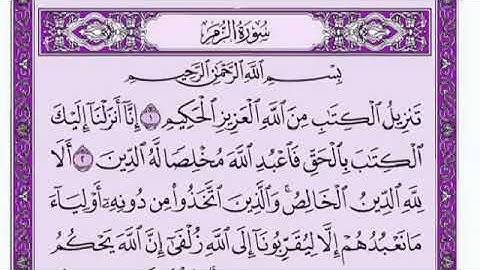 سُورَةُ الزُّمَرِ
بِسْمِ اللَّهِ الرَّحْمَٰنِ الرَّحِيمِ
تَنزِيلُ الْكِتَٰبِ مِنَ اللَّهِ الْعَزِيزِ الْحَكِيمِ ١ إِنَّآ أَنزَلْنَآ إِلَيْكَ
الْكِتَٰبَ بِالْحَقِّ فَاعْبُدِ اللَّهَ مُخْلِصًا لَّهُ الدِّينَ ٢ أَلَا
لِلَّهِ الدِّينُ الْخَالِصُ ۚ وَالَّذِينَ اتَّخَذُوا۟ مِن دُونِهِۦٓ أَوْلِيَآءَ
مَا نَعْبُدُهُمْ إِلَّا لِيُقَرِّبُونَآ إِلَى اللَّهِ زُلْفَىٰٓ إِنَّ اللَّهَ يَحْكُمُ